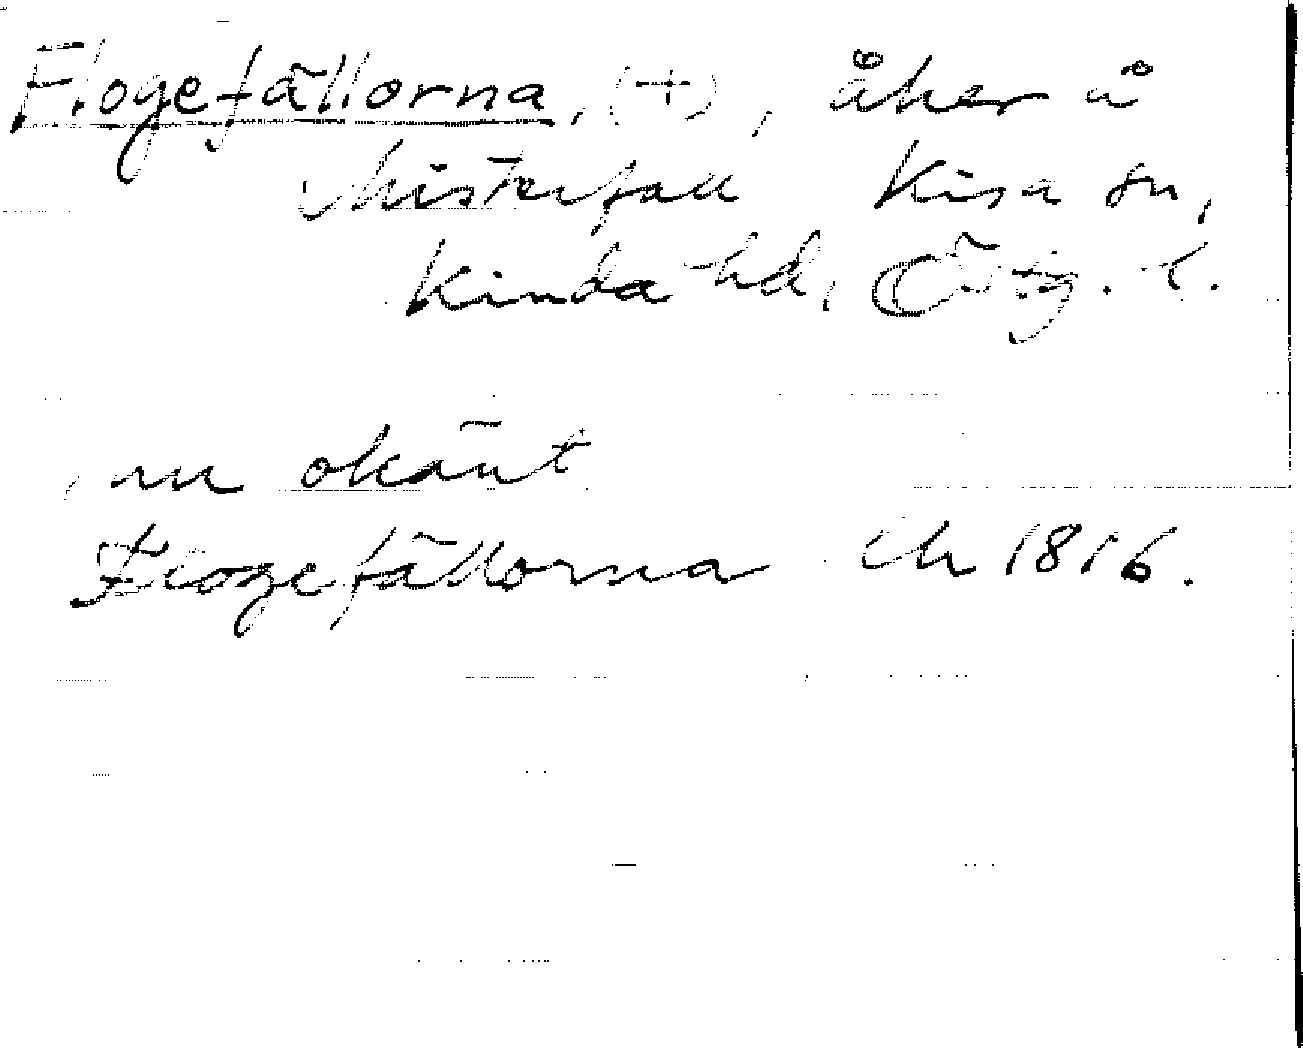 Flogefällorna, (+), åker å
Misterfall Kisa sn,
Kinda hd, Östg. l.
nu okänt
Flogefällorna Eh 1816.